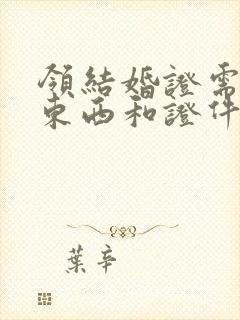 領結婚證需
東西和證件
葉辛